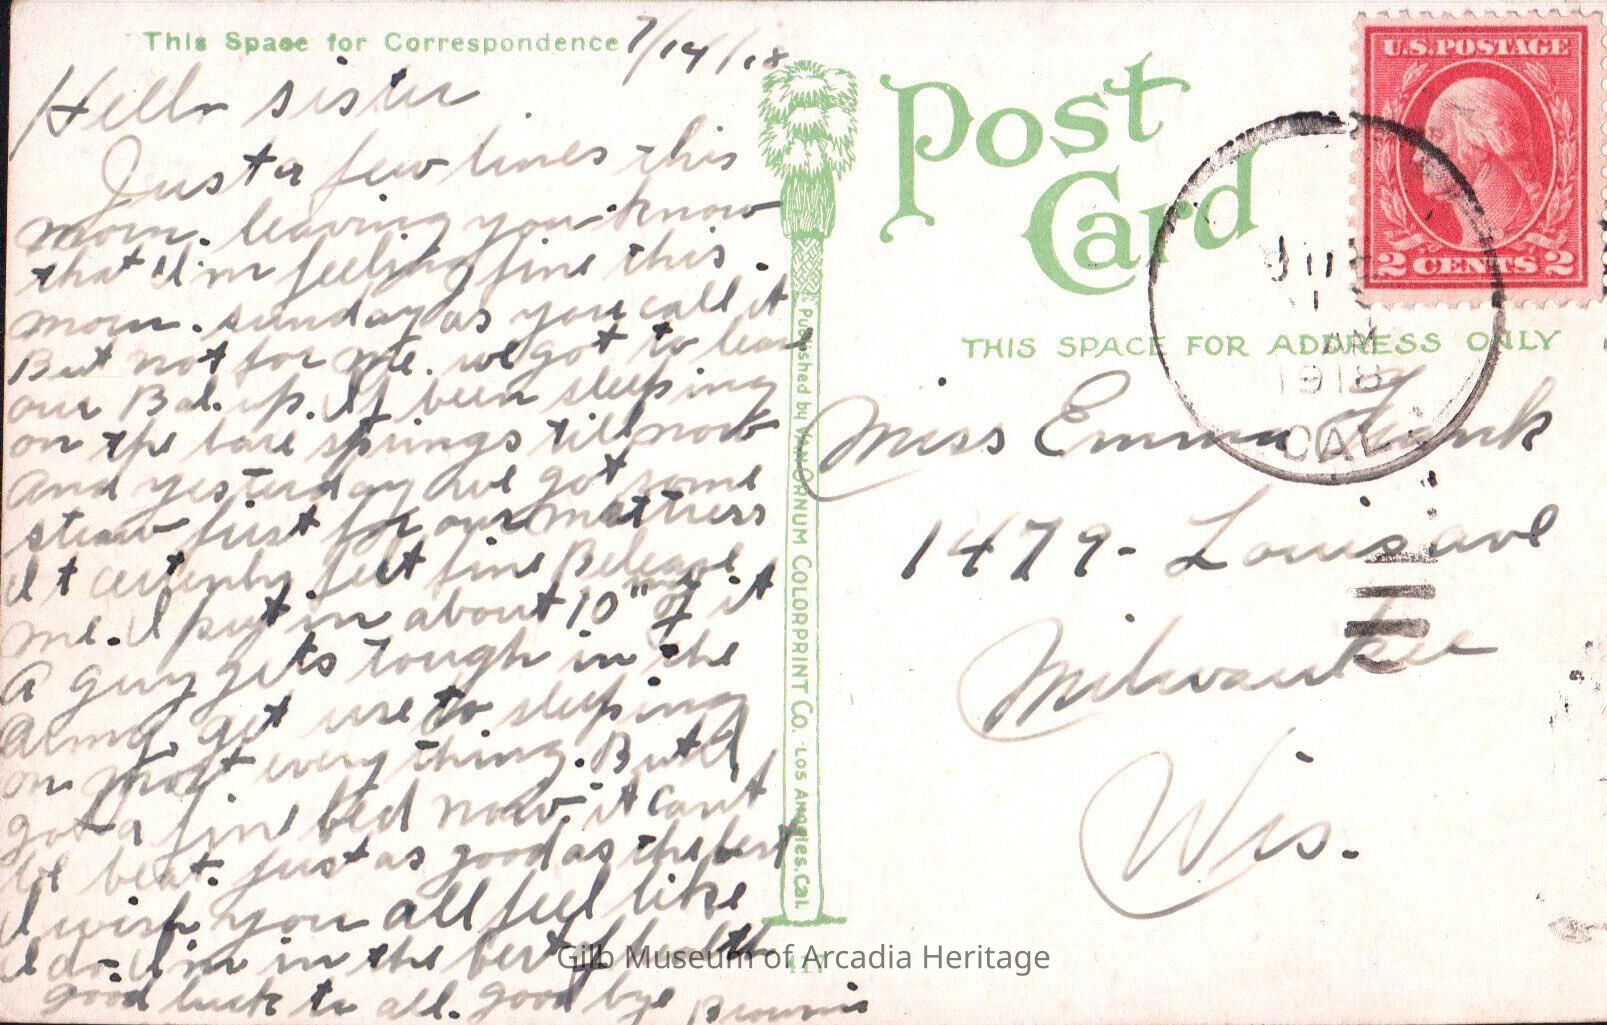 This Space for Correspondence 7/14/18
Hello sister
Just a few lines this
morn. leaving you know
that I'm feeling fine this
morn. sunday as you call it
But not for me. we got to
our Bal. up. If been sleeping
on the bare springs till now
and yesterday we got some
straw just for our mattress
it certenly felt fine Beleave
me. I put in about 10" of it
A guy gets tough in the
Army. get use to sleeping
on most every thing. But I
got a fine bed now. it cant
be beat. just as good as the best
I wish you all feel like
I do. I'm in the best of health
good luck to all. good bye Brownie
Published by VAN ORNUM COLORPRINT CO. LOS Angeles. Cal.
Post
Card
U.S. POSTAGE
2 CENTS 2
AM
1918
CAL.
THIS SPACE FOR ADDRESS ONLY
Miss Emma Funk
1479 - Louis ave
Milwaukee
Wis.
Gilb Museum of Arcadia Heritage